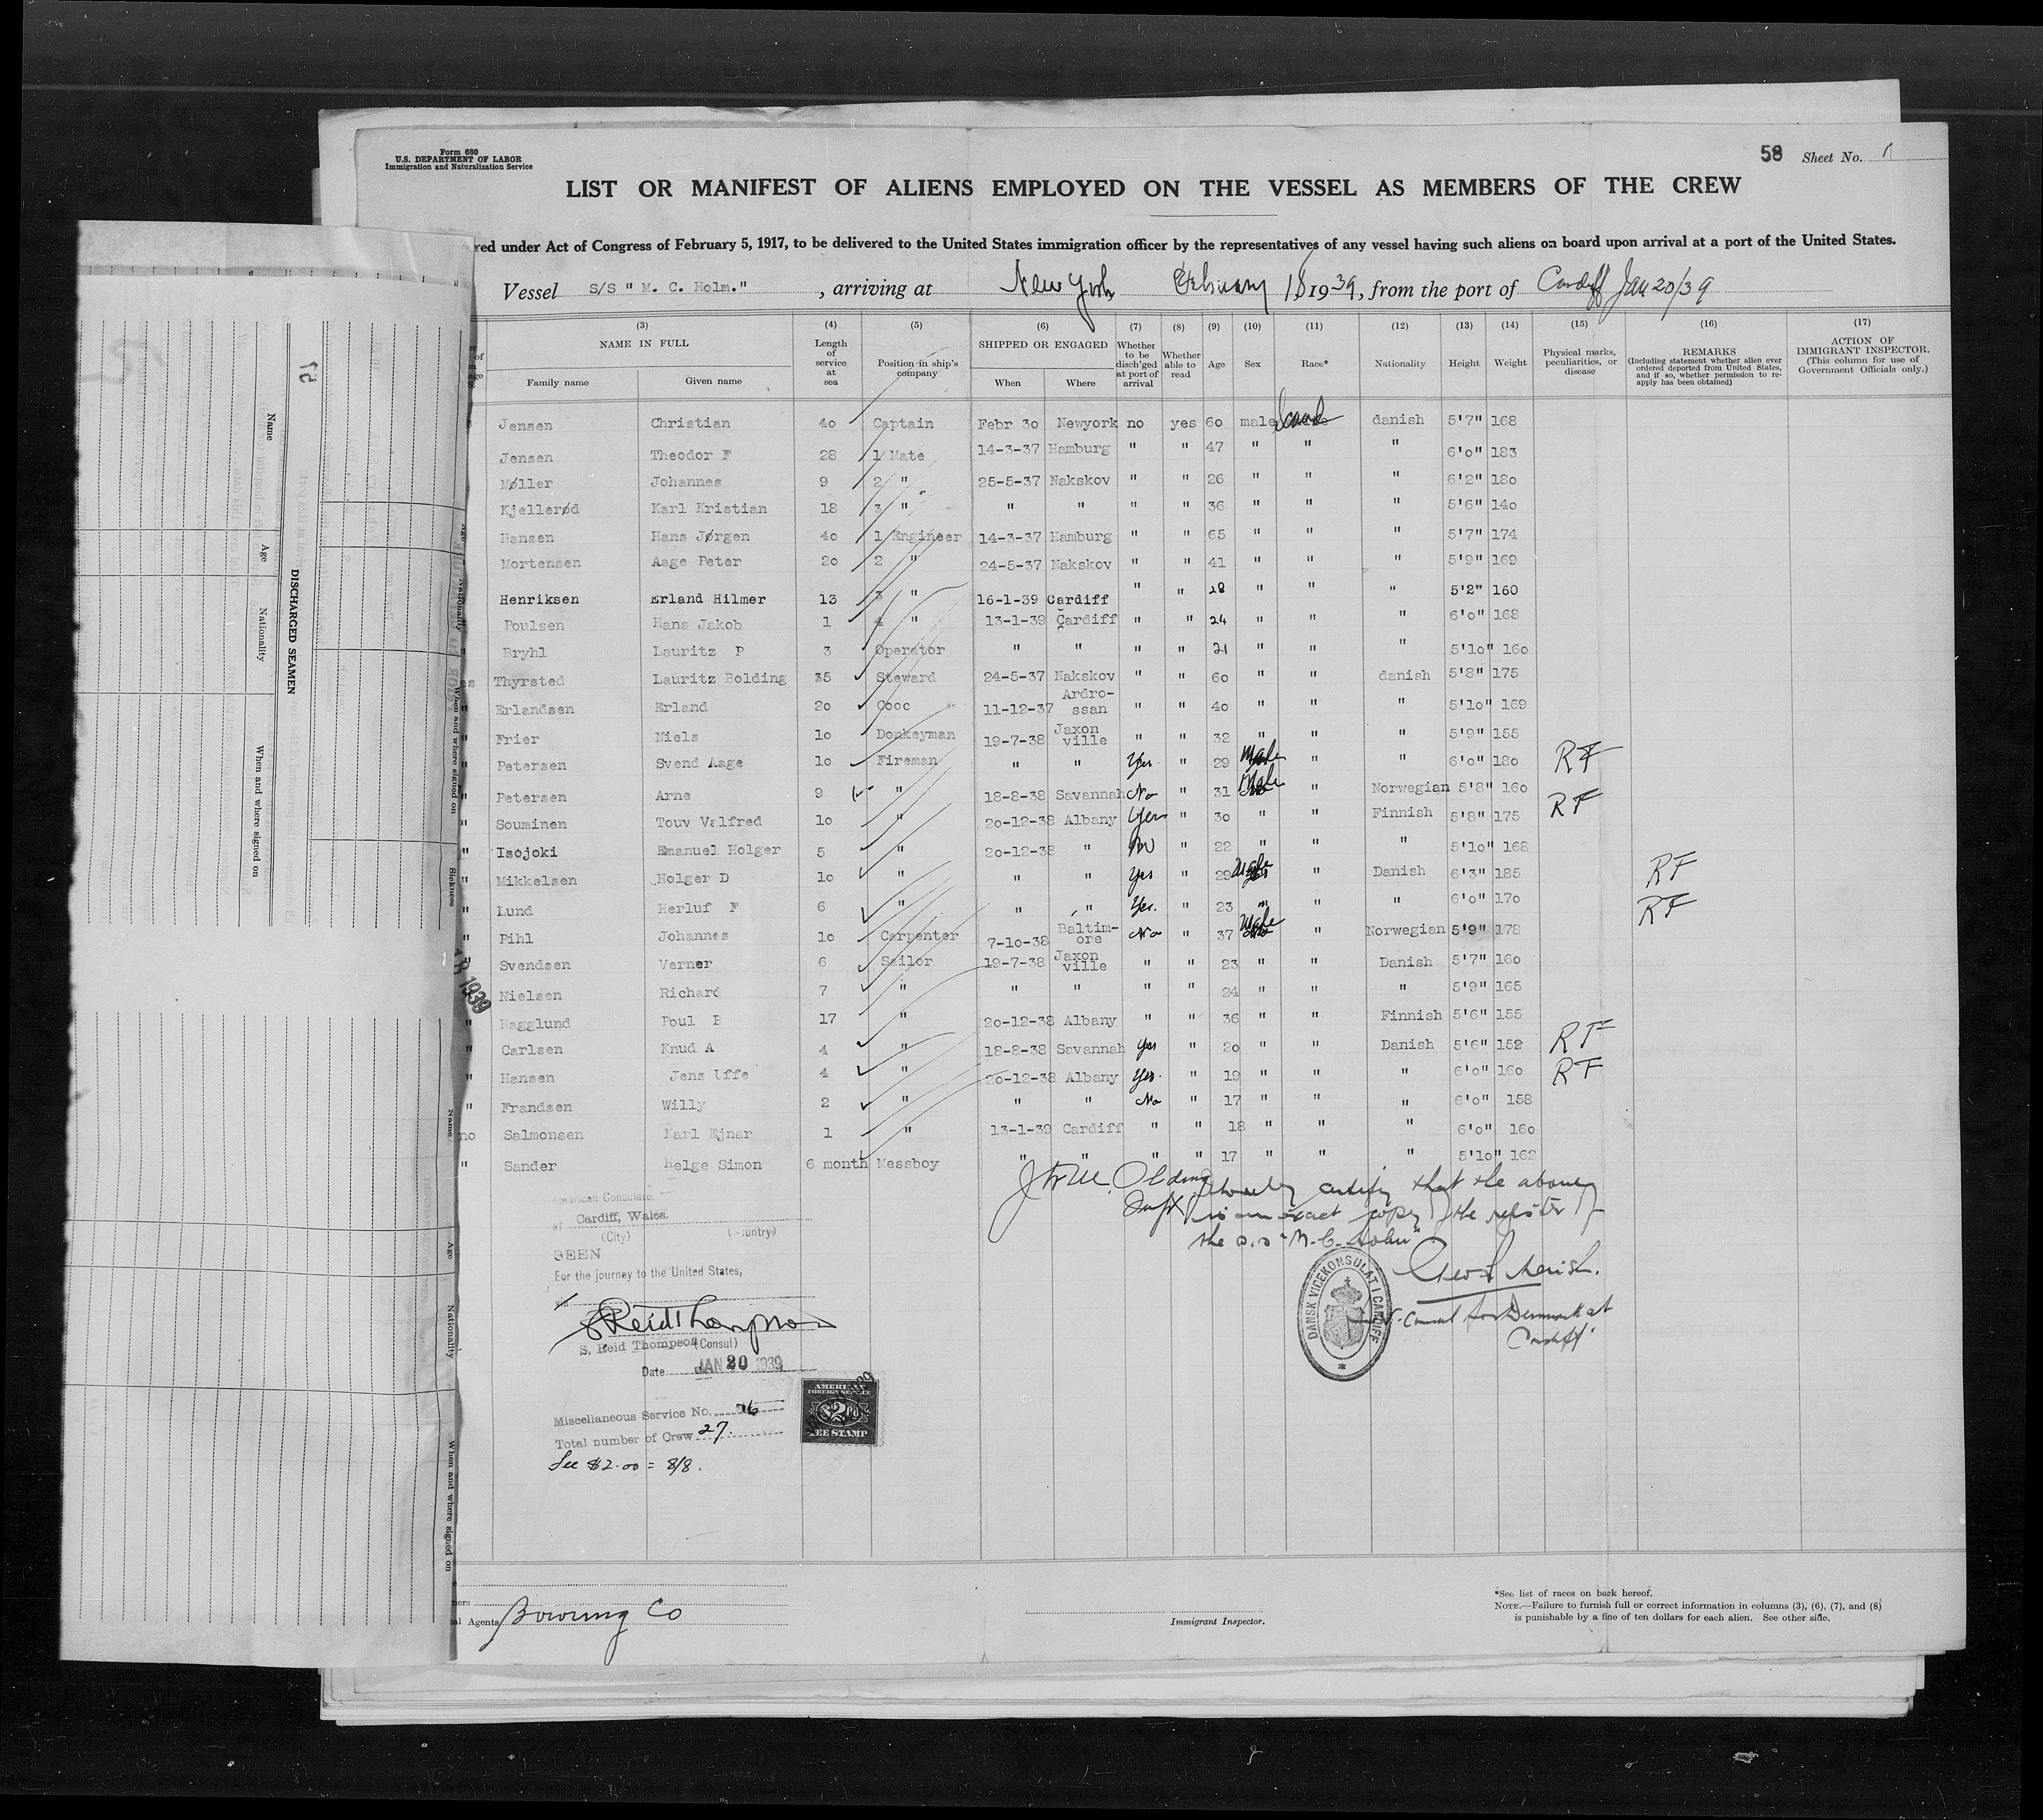 Form 680
U.S. DEPARTMENT OF LABOR
Immigration and Naturalization Service
58 Sheet No. 1
LIST OR MANIFEST OF ALIENS EMPLOYED ON THE VESSEL AS MEMBERS OF THE CREW
red under Act of Congress of February 5, 1917, to be delivered to the United States immigration officer by the representatives of any vessel having such aliens on board upon arrival at a port of the United States.
Vessel S/S " M. C. Holm." , arriving at New York 1939, from the port of Cardiff Jan 20/39
(3) (4) (5) (6) (7) (8) (9) (10) (11) (12) (13) (14) (15) (16) (17)
NAME IN FULL
Family name Given name
Length of service at sea
Position in ship's company
SHIPPED OR ENGAGED
When Where
Whether to be disch'ged at port of arrival
Whether able to read
Age Sex Race* Nationality Height Weight
Physical marks, peculiarities, or disease
REMARKS
(Including statement whether alien ever ordered deported from United States, and if so, whether permission to re-apply has been obtained)
ACTION OF IMMIGRANT INSPECTOR.
(This column for use of Government Officials only.)
Jensen Christian 40 Captain Febr 30 Newyork no yes 60 male Scand danish 5'7" 168
Jensen Theodor F 28 1 Mate 14-3-37 Hamburg " " 47 " " " 6'0" 183
Møller Johannes 9 2 " 25-5-37 Nakskov " " 26 " " " 6'2" 180
Kjellerød Karl Kristian 18 3 " " " " " 36 " " " 5'6" 140
Hansen Hans Jørgen 40 1 Engineer 14-3-37 Hamburg " " 65 " " " 5'7" 174
Mortensen Aage Peter 20 2 " 24-5-37 Nakskov " " 41 " " " 5'9" 169
Henriksen Erland Hilmer 13 3 " 16-1-39 Cardiff " " 28 " " " 5'2" 160
Poulsen Hans Jakob 1 4 " 13-1-39 Cardiff " " 24 " " " 6'0" 168
Bryhl Lauritz P 3 Operator " " " " 21 " " " 5'10" 160
es Thyrsted Lauritz Bolding 35 Steward 24-5-37 Nakskov " " 60 " " danish 5'8" 175
" Erlandsen Erland 20 Cooc 11-12-37 Ardro-ssan " " 40 " " " 5'10" 169
" Frier Niels 10 Donkeyman 19-7-38 Jaxon ville " " 32 " " " 5'9" 155
" Petersen Svend Aage 10 Fireman " " Yes " 29 Male " " 6'0" 180 RF
" Petersen Arne 9 " 18-8-38 Savannah No " 31 Male " Norwegian 5'8" 160
" Souminen Touv Valfred 10 " 20-12-38 Albany Yes " 30 " " Finnish 5'8" 175 RF
" Isojoki Emanuel Holger 5 " 20-12-38 " No " 22 " " " 5'10" 168
" Mikkelsen Holger D 10 " " " Yes " 29 Male " Danish 6'3" 185 RF
" Lund Herluf F 6 " " " Yes. " 23 " " " 6'0" 170 RF
" Pihl Johannes 10 Carpenter 7-10-38 Baltim-ore No " 37 Male " Norwegian 5'9" 178
" Svendsen Verner 6 Sailor 19-7-38 Jaxon ville " " 23 " " Danish 5'7" 160
Nielsen Richard 7 " " " " " 24 " " " 5'9" 165
" Hagglund Poul E 17 " 20-12-38 Albany " " 36 " " Finnish 5'6" 155
" Carlsen Knud A 4 " 18-8-38 Savannah Yes " 20 " " Danish 5'6" 152 RF
" Hansen Jens Uffe 4 " 20-12-38 Albany Yes. " 19 " " " 6'0" 160 RF
" Frandsen Willy 2 " " " No " 17 " " " 6'0" 158
no Salmonsen Karl Ejnar 1 " 13-1-39 Cardiff " " 18 " " " 6'0" 160
" Sander Helge Simon 6 month Messboy " " " " 17 " " " 5'10" 162
I hereby certify that the above
is an exact copy of the register of
the s.s "M. C. Holm"
American Consulate.
at Cardiff, Wales.
(City) (Country)
SEEN
For the journey to the United States,
S. Reid Thompson
S. Reid Thompson (Consul)
Date JAN 20 1939
DANSK VICEKONSULAT I CARDIFF
V. Consul for Denmark at
Cardiff
AMERICAN
FOREIGN SERVICE
$2.00
FEE STAMP
Miscellaneous Service No. 76
Total number of Crew 27.
Fee $2.00 = 8/8.
ners
al Agents Bowring Co
Immigrant Inspector.
*See list of races on back hereof.
NOTE.—Failure to furnish full or correct information in columns (3), (6), (7), and (8)
is punishable by a fine of ten dollars for each alien. See other side.
57
DISCHARGED SEAMEN
Name Age Nationality When and where signed on
Age Nationality When and where signed on Sickness
Name Age Nationality When and where signed on
1939